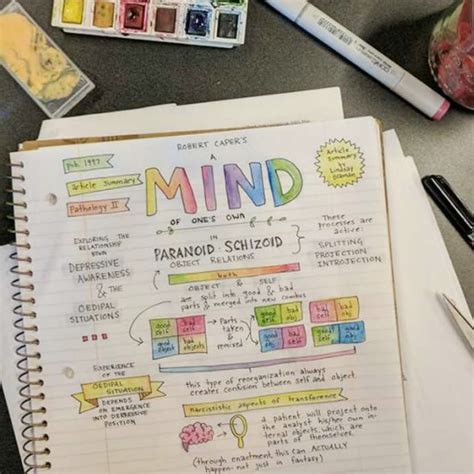 ROBERT CAPER'S
A
MIND
OF ONE'S OWN
Pub. 1997
Article Summary
Pathology II
Article
Summary
by
Lindsay
EXPLORING THE
RELATIONSHIP
BTWN
DEPRESSIVE
AWARENESS
& THE
OEDIPAL
SITUATIONS
IN
PARANOID-SCHIZOID
OBJECT RELATIONS
both
OBJECT & SELF
are split into good & bad
parts & merged into new combos
These
processes are
active:
SPLITTING
PROJECTION
INTROJECTION
good self
bad self
good object
bad objects
→ Parts →
taken
&
remixed
good self
bad obj.
bad self
good obj.
bad obj.
bad self
good obj.
good self
this type of reorganization always
creates confusion between self and object
EXPERIENCE
OF THE
OEDIPAL
SITUATION
DEPENDS
ON EMERGENCE
INTO DEPRESSIVE
POSITION
narcissistic aspects of transference
a patient will project onto
the analyst his/her own in-
ternal objects, which are
parts of themselves.
(through enactment, this can ACTUALLY
happen - not just in fantasy)